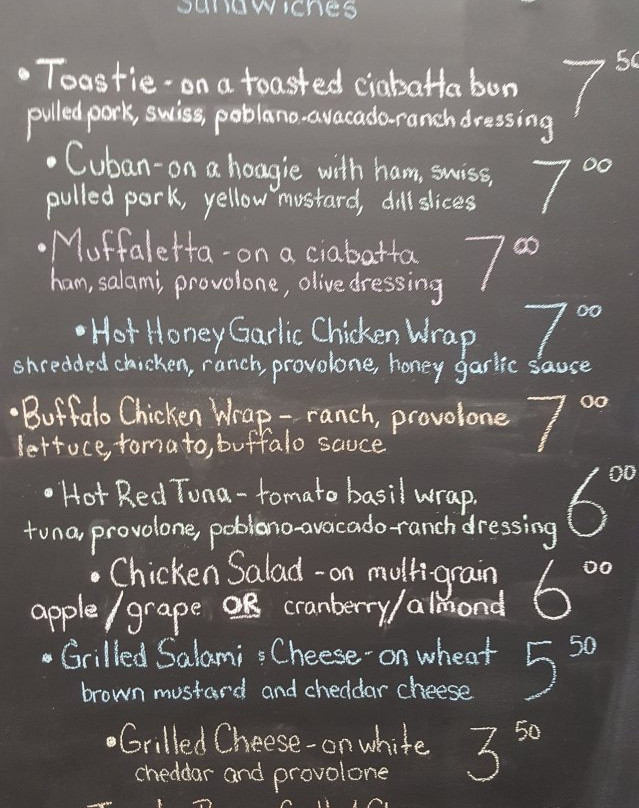 Sandwiches
• Toastie - on a toasted ciabatta bun 7 50
pulled pork, swiss, poblano-avacado-ranch dressing
• Cuban - on a hoagie with ham, swiss, 7 00
pulled pork, yellow mustard, dill slices
• Muffaletta - on a ciabatta 7 00
ham, salami, provolone, olive dressing
• Hot Honey Garlic Chicken Wrap 7 00
shredded chicken, ranch, provolone, honey garlic sauce
• Buffalo Chicken Wrap - ranch, provolone 7 00
lettuce, tomato, buffalo sauce
• Hot Red Tuna - tomato basil wrap. 6 00
tuna, provolone, poblano-avacado-ranch dressing
• Chicken Salad - on multi-grain 6 00
apple/grape OR cranberry/almond
• Grilled Salami & Cheese - on wheat 5 50
brown mustard and cheddar cheese
• Grilled Cheese - on white 3 50
cheddar and provolone